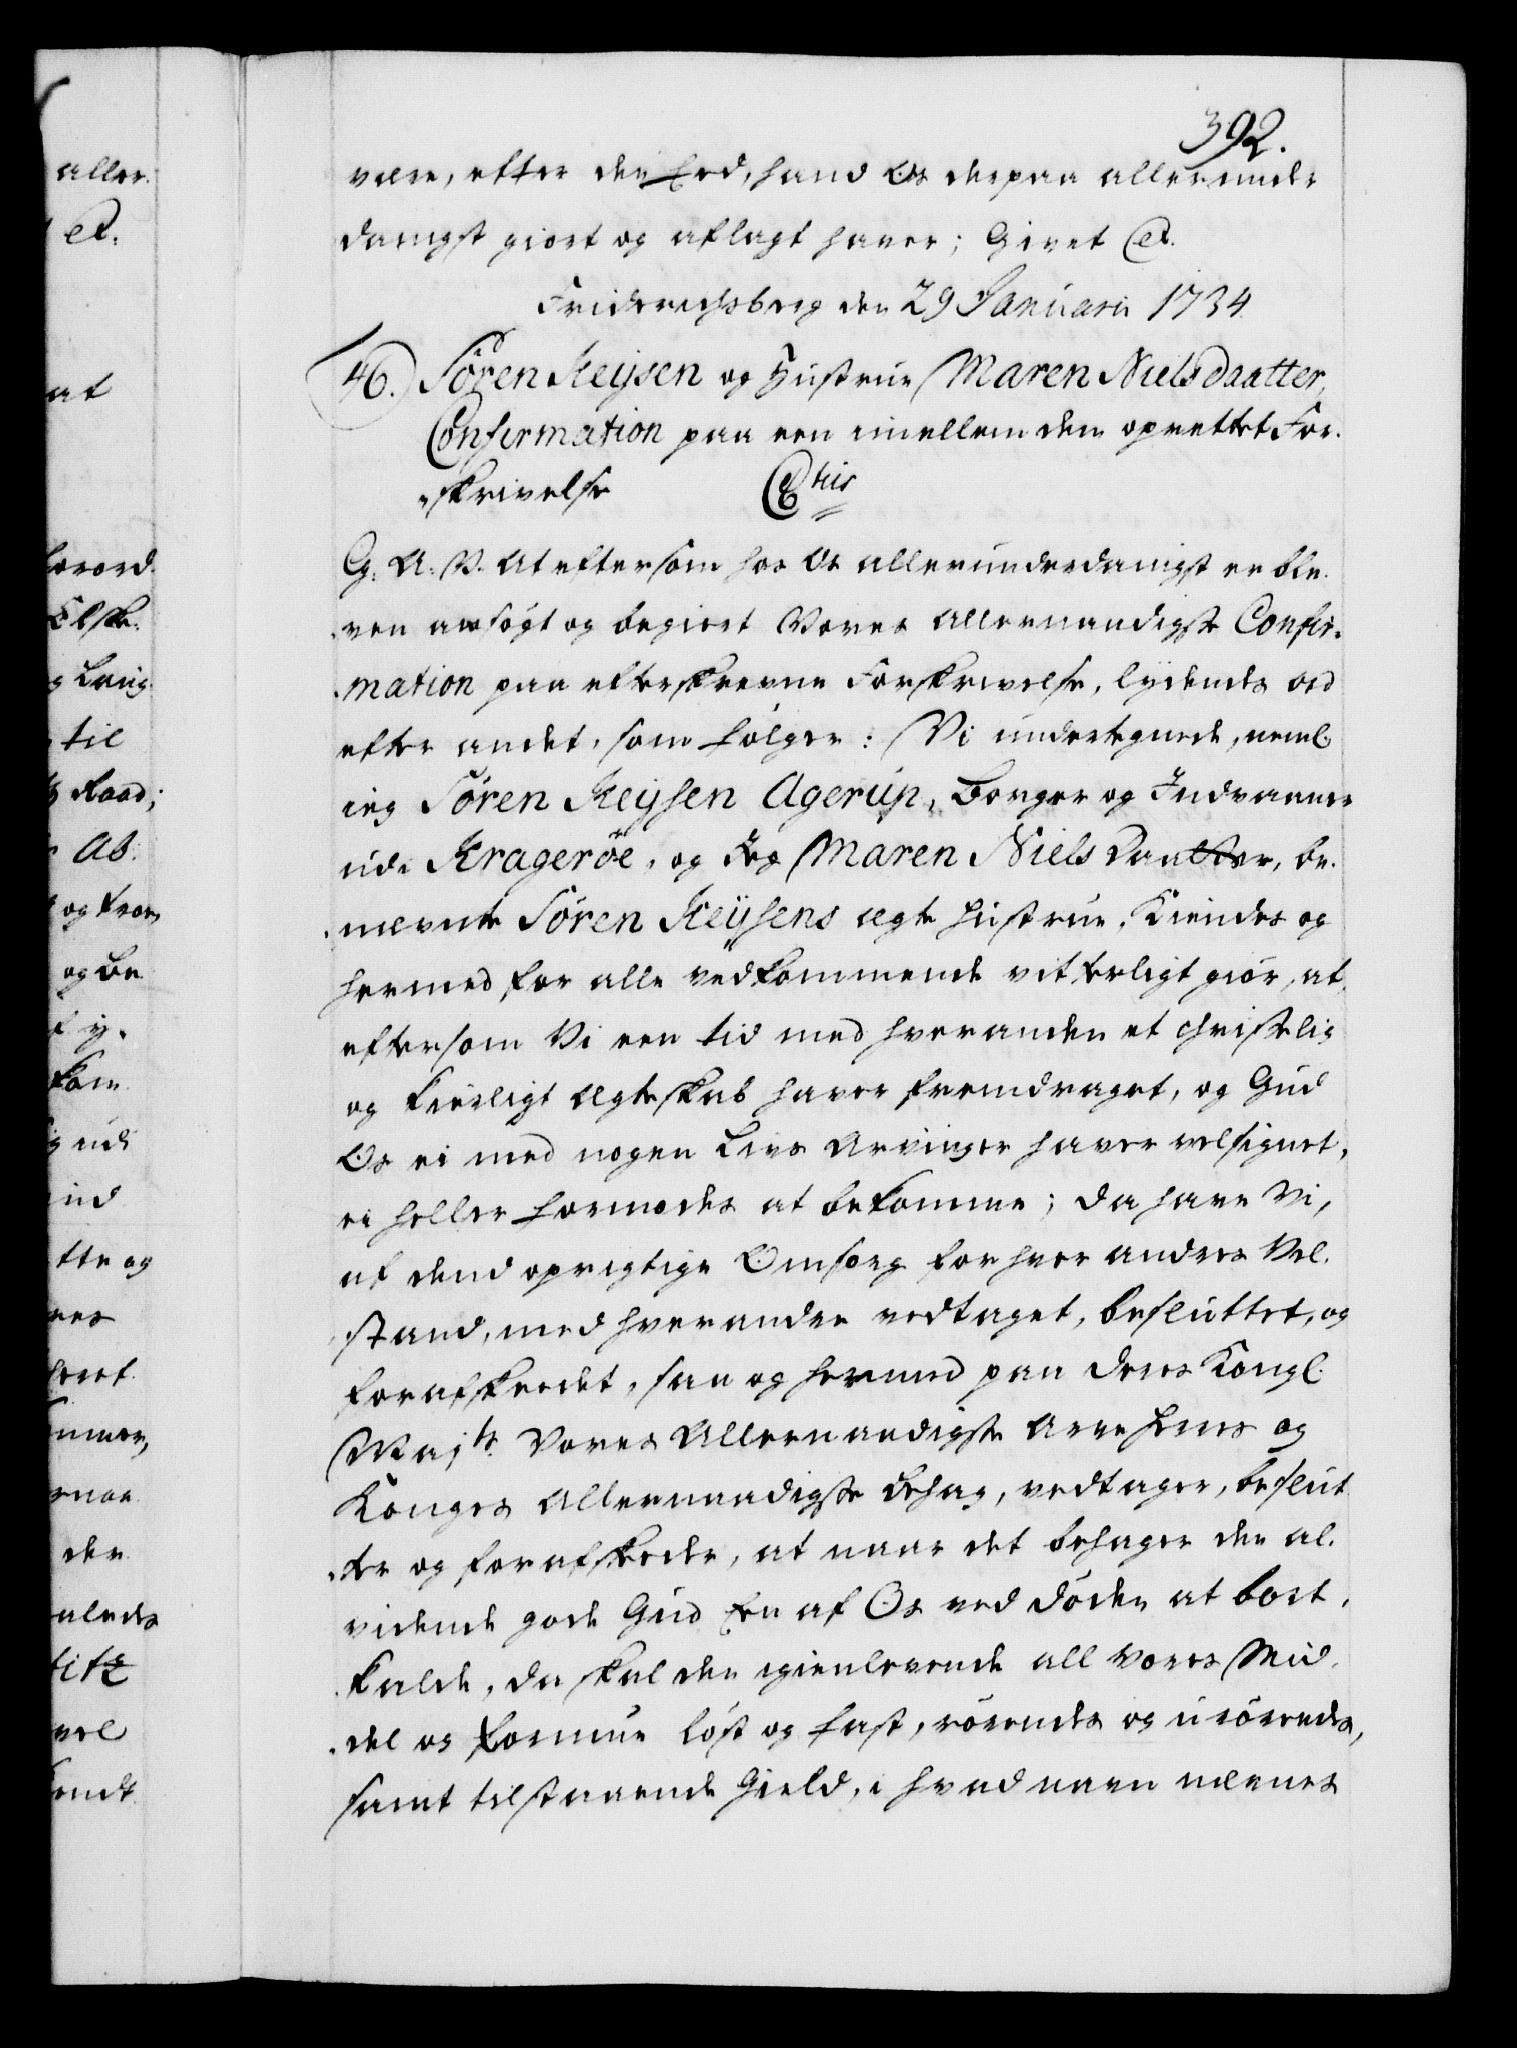 392.
være, efter den Eed, hand Os derpaa allerunder
danigst giort og aflagt haver; Givet Cet.
Friderichsberg den 29 Januarii 1734.
46. Sören Keysen og Hustrue Maren Nielsdaatter,
Confirmation paa een imellem dem oprettet For-
skrivelse Ctus
G: A: V. At eftersom hos Os allerunderdanigst er ble-
ven ansögt og begiert Vores Allernaadigste Confir-
mation paa efterskrevne Forskrivelse, lydendes ord
efter andet, som fölger: Vi undertegnede, neml.
ieg Sören Keysen Agerup, Borger og Indvaaner
udi Krageröe, og Ieg Maren Niels Daatter, be-
mævnte Sören Keysens ægte Hustrue, Kiendes og
hermed for alle vedkommende vitterligt giör, at,
eftersom Vi een tid med hverandre et christelig
og kierligt Ægteskab haver fremdraget, og Gud
Os ei med nogen Livs Arvinger haver velsignet,
ei heller formodes at bekomme; da have Vi,
af dend oprigtige Omsorg for hver anders Vel-
stand, med hverandre vedtaget, besluttet, og
forafskeedet, saa og hermed paa Deres Kongl.
Majts. Vores Allernaadigste Arve Herres og
Konges Allernaadigste Behag, vedtager, beslut-
ter og forafskeder, at naar det behager den al-
vidende gode Gud Een af Os ved döden at bort-
kalde, da skal den igienlevende all vores Mid-
del og formue löst og fast, rörendes og urörendes,
samt tilstaaende Gield, i hvad navn nævnes